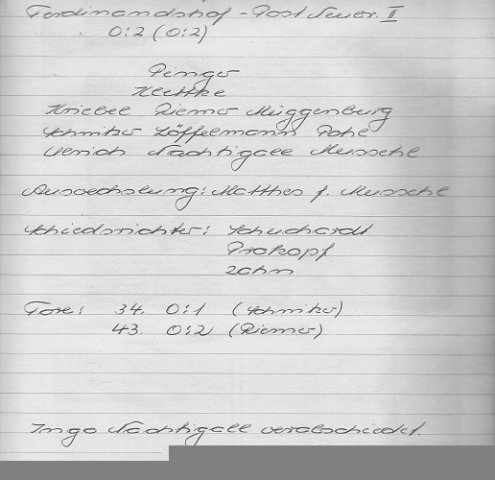 Ferdinandshof - Post Neubr. II
0:2 (0:2)
Pingo
Klettke
Kriebel Riemer Müggenburg
Schmitz Löffelmann Pohe
Ulrich Nachtigall Mussehl
Auswechslung: Matthes f. Mussehl
Schiedsrichter: Schuchardt
Prokopf
Zahn
Tore: 34. 0:1 (Schmitz)
43. 0:2 (Riemer)
Ingo Nachtigall verabschiedet.